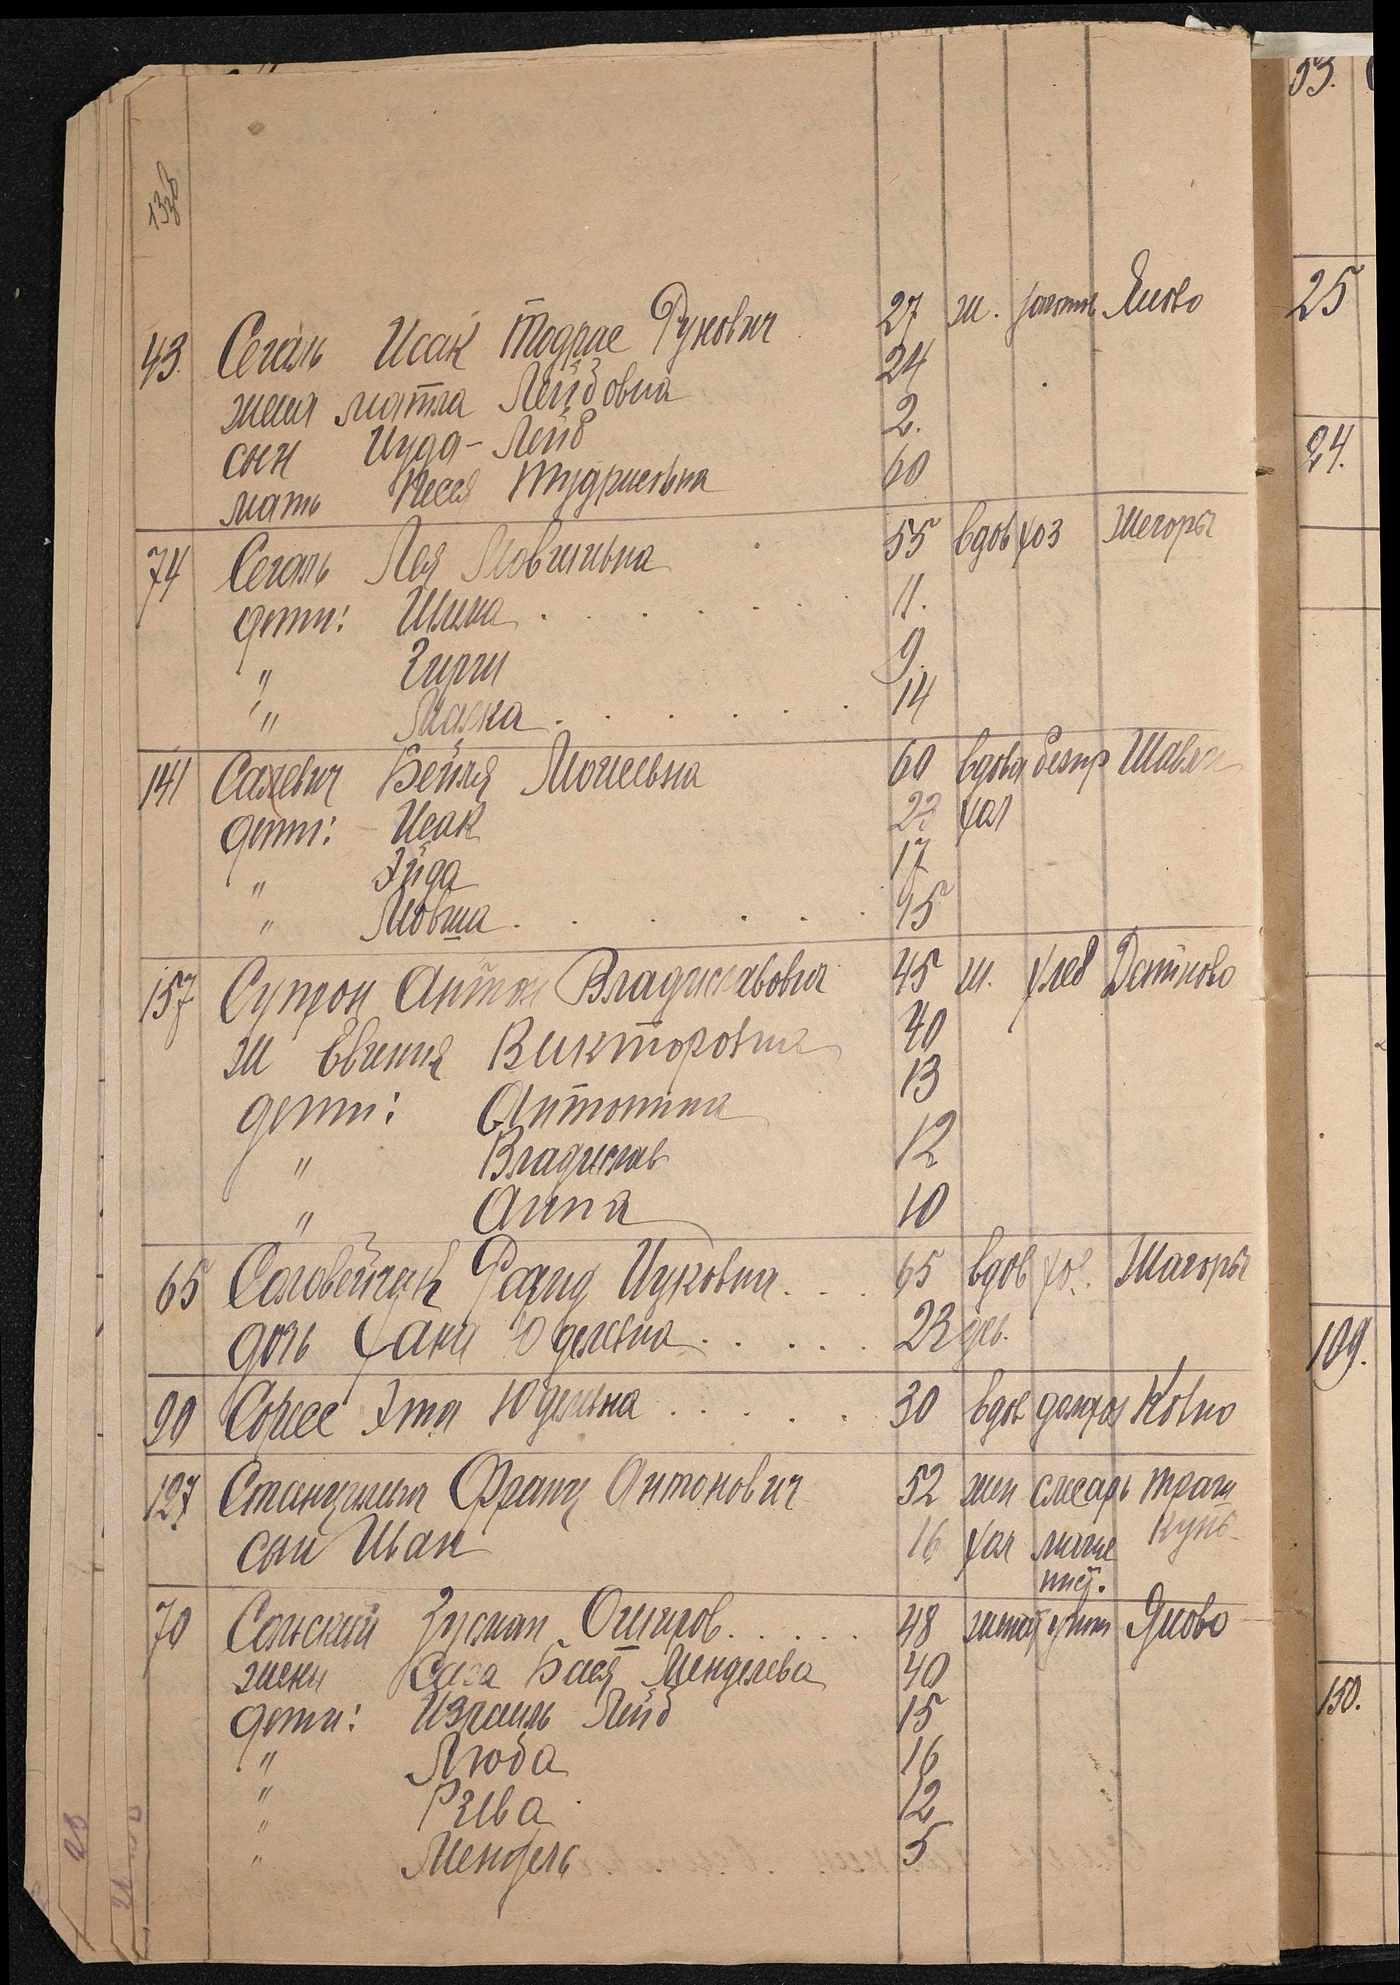 53.
43. Сегаль Исак Тодрас Рукович 27 ж. Яново
жена Матла Лейбовна 24
сын Иуда-Лейб 2.
мать Песся 60
25
24.
74 Сегаль Лея Мовшивна 55 вдов хоз Жегоры
дети: Шлема 11.
" Гирш 9.
" Малка 14
141 Сахевич Бейля Моисевна 60 вдова безпр Шавли
дети: Исак 22 хол
" Эйда 17
" Мовша 15
157 Супрон Антон Владиславович 45 ж. хлеб Датново
ж Евгения Викторовна 40
дети: Антонина 13
" Владислав 12
" Анна 10
65 Соловейчик Ицковна 65 вдов хоз. Шагоры
дочь Хана Юделевна 23 дев.
109.
90 Сорсе Эта Юдельна 30 вдов домхоз Ковно
127 Франц Антонович 52 жен слесарь Трашкуны
сын Иван 16 хол
70 Сольский Зусман Ошеров 48 женат Яново
жена Хаса Бася Менделева 40
дети: Израиль Лейб 15
" Люба 16
" Рива 12
" Мендель 5
150.